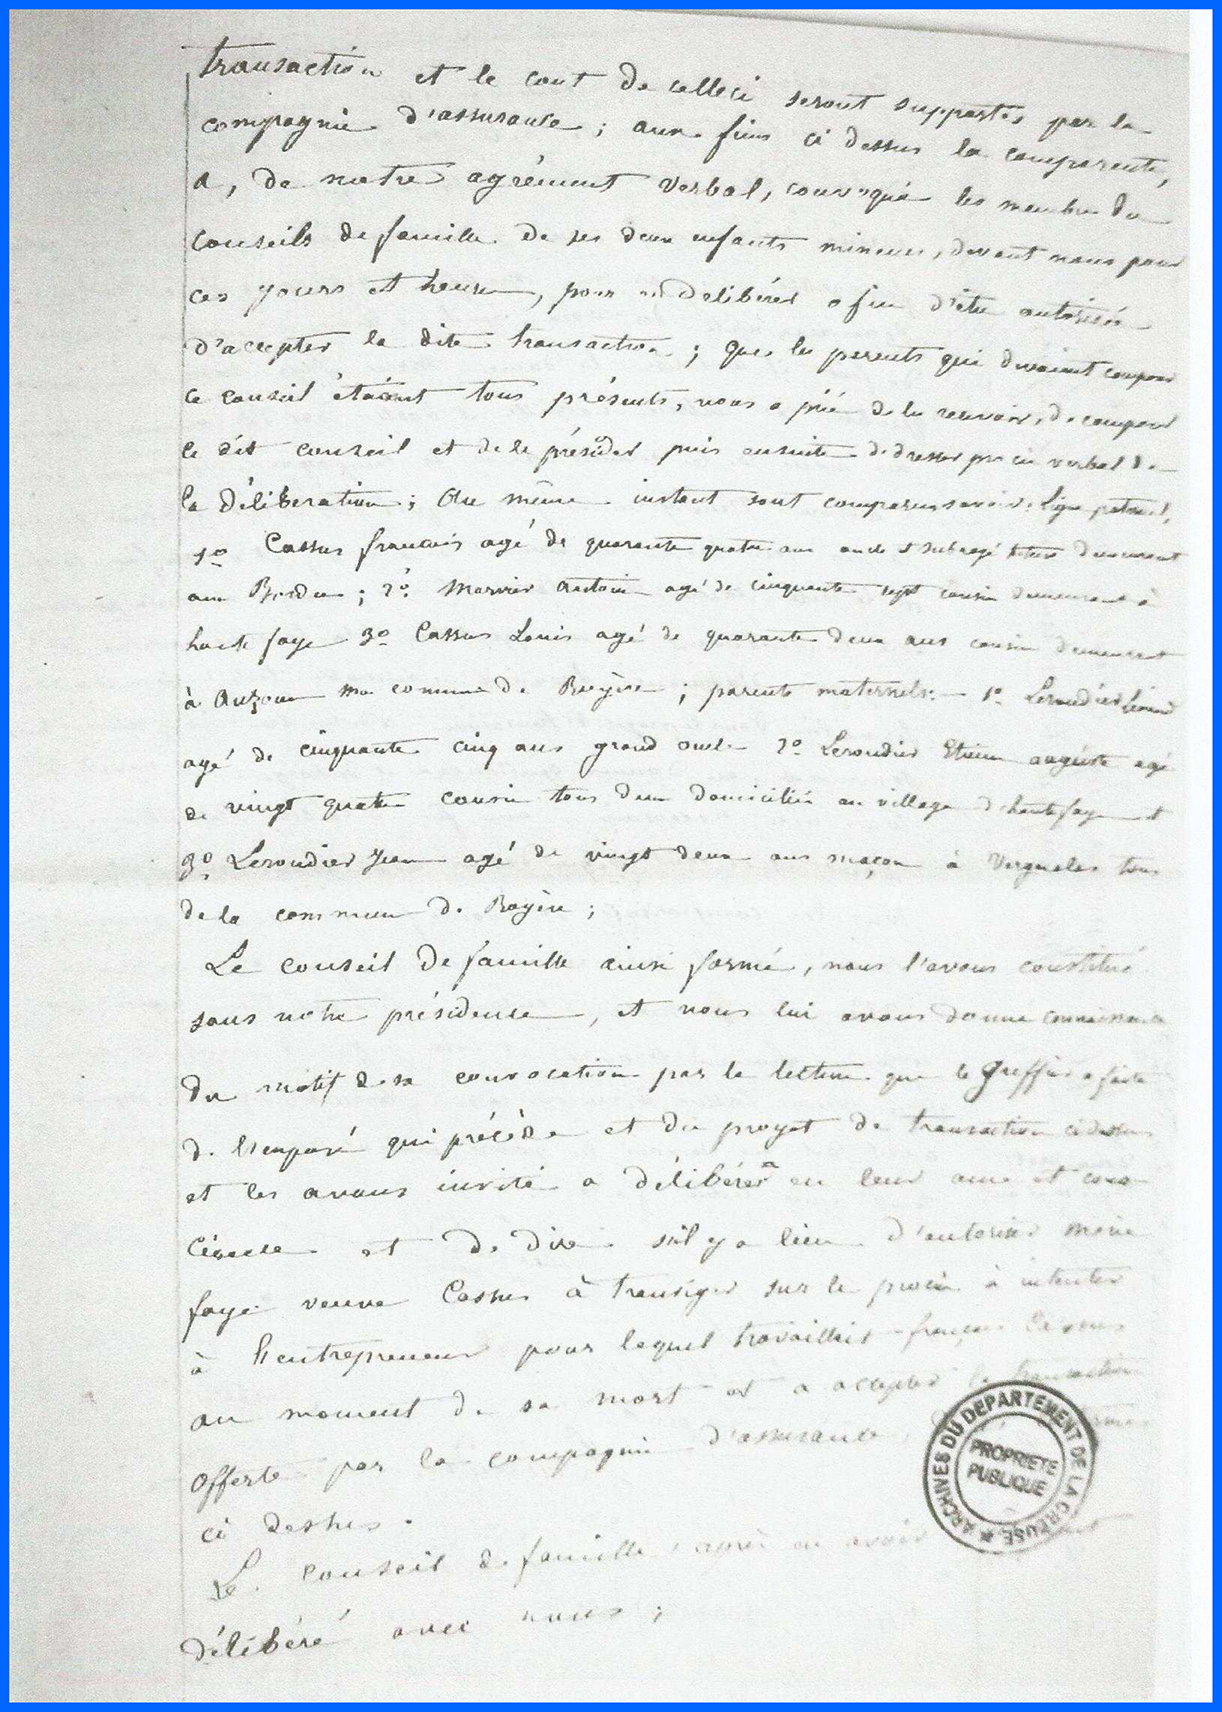 transaction et le cout de celleci seront supportés par la
compagnie d'assurance ; aux fins ci dessus la comparente,
a, de notre agrément verbal, convoqué les membres du
conseils de famille de ses deux enfants mineurs, devant nous pour
ces jours et heure, pour délibérer afin d'être autorisée
d'accepter la dite transaction ; que les parents qui devaient composer
ce conseil étaient tous présents, nous a prié de les recevoir, de composer
le dit conseil et de le présider puis ensuite de dresser procès verbal de
la délibération ; Au même instant sont comparus savoir : ligne paternel,
1º Cassus francois agé de quarante quatre ans oncle et subrogé tuteur demeurant
au ; 2º antoine agé de cinquante sept cousin demeurant à
haute faye 3º Cassus Louis agé de quarante deux ans cousin demeurant
à commune de Royère ; parents maternels : 1º Leroudier
agé de cinquante cinq ans grand oncle 2º Leroudier Etienne auguste agé
de vingt quatre cousin tous deux domiciliés au village d'hautefaye et
3º Leroudier Jean agé de vingt deux ans maçon à tous
de la commune de Royère ;
Le conseil de famille ainsi formé, nous l'avons constitué
sous notre présidence, et nous lui avons donné connaissance
du motif de sa convocation par la lecture que le greffier a faite
de l'exposé qui précède et du projet de transaction ci dessus
et les avons invité a délibérer en leur ame et cons-
cience et de dire s'il y a lieu d'autoriser marie
faye veuve Cassus à transiger sur le procès à intenter
à l'entrepreneur pour lequel travaillait françois Cassus
au moment de sa mort et a accepter la transaction
offerte par la compagnie d'assurance
ci dessus.
Le conseil de famille après en avoir
délibéré avec nous ;
ARCHIVES DU DEPARTEMENT DE LA CREUSE
PROPRIETE
PUBLIQUE